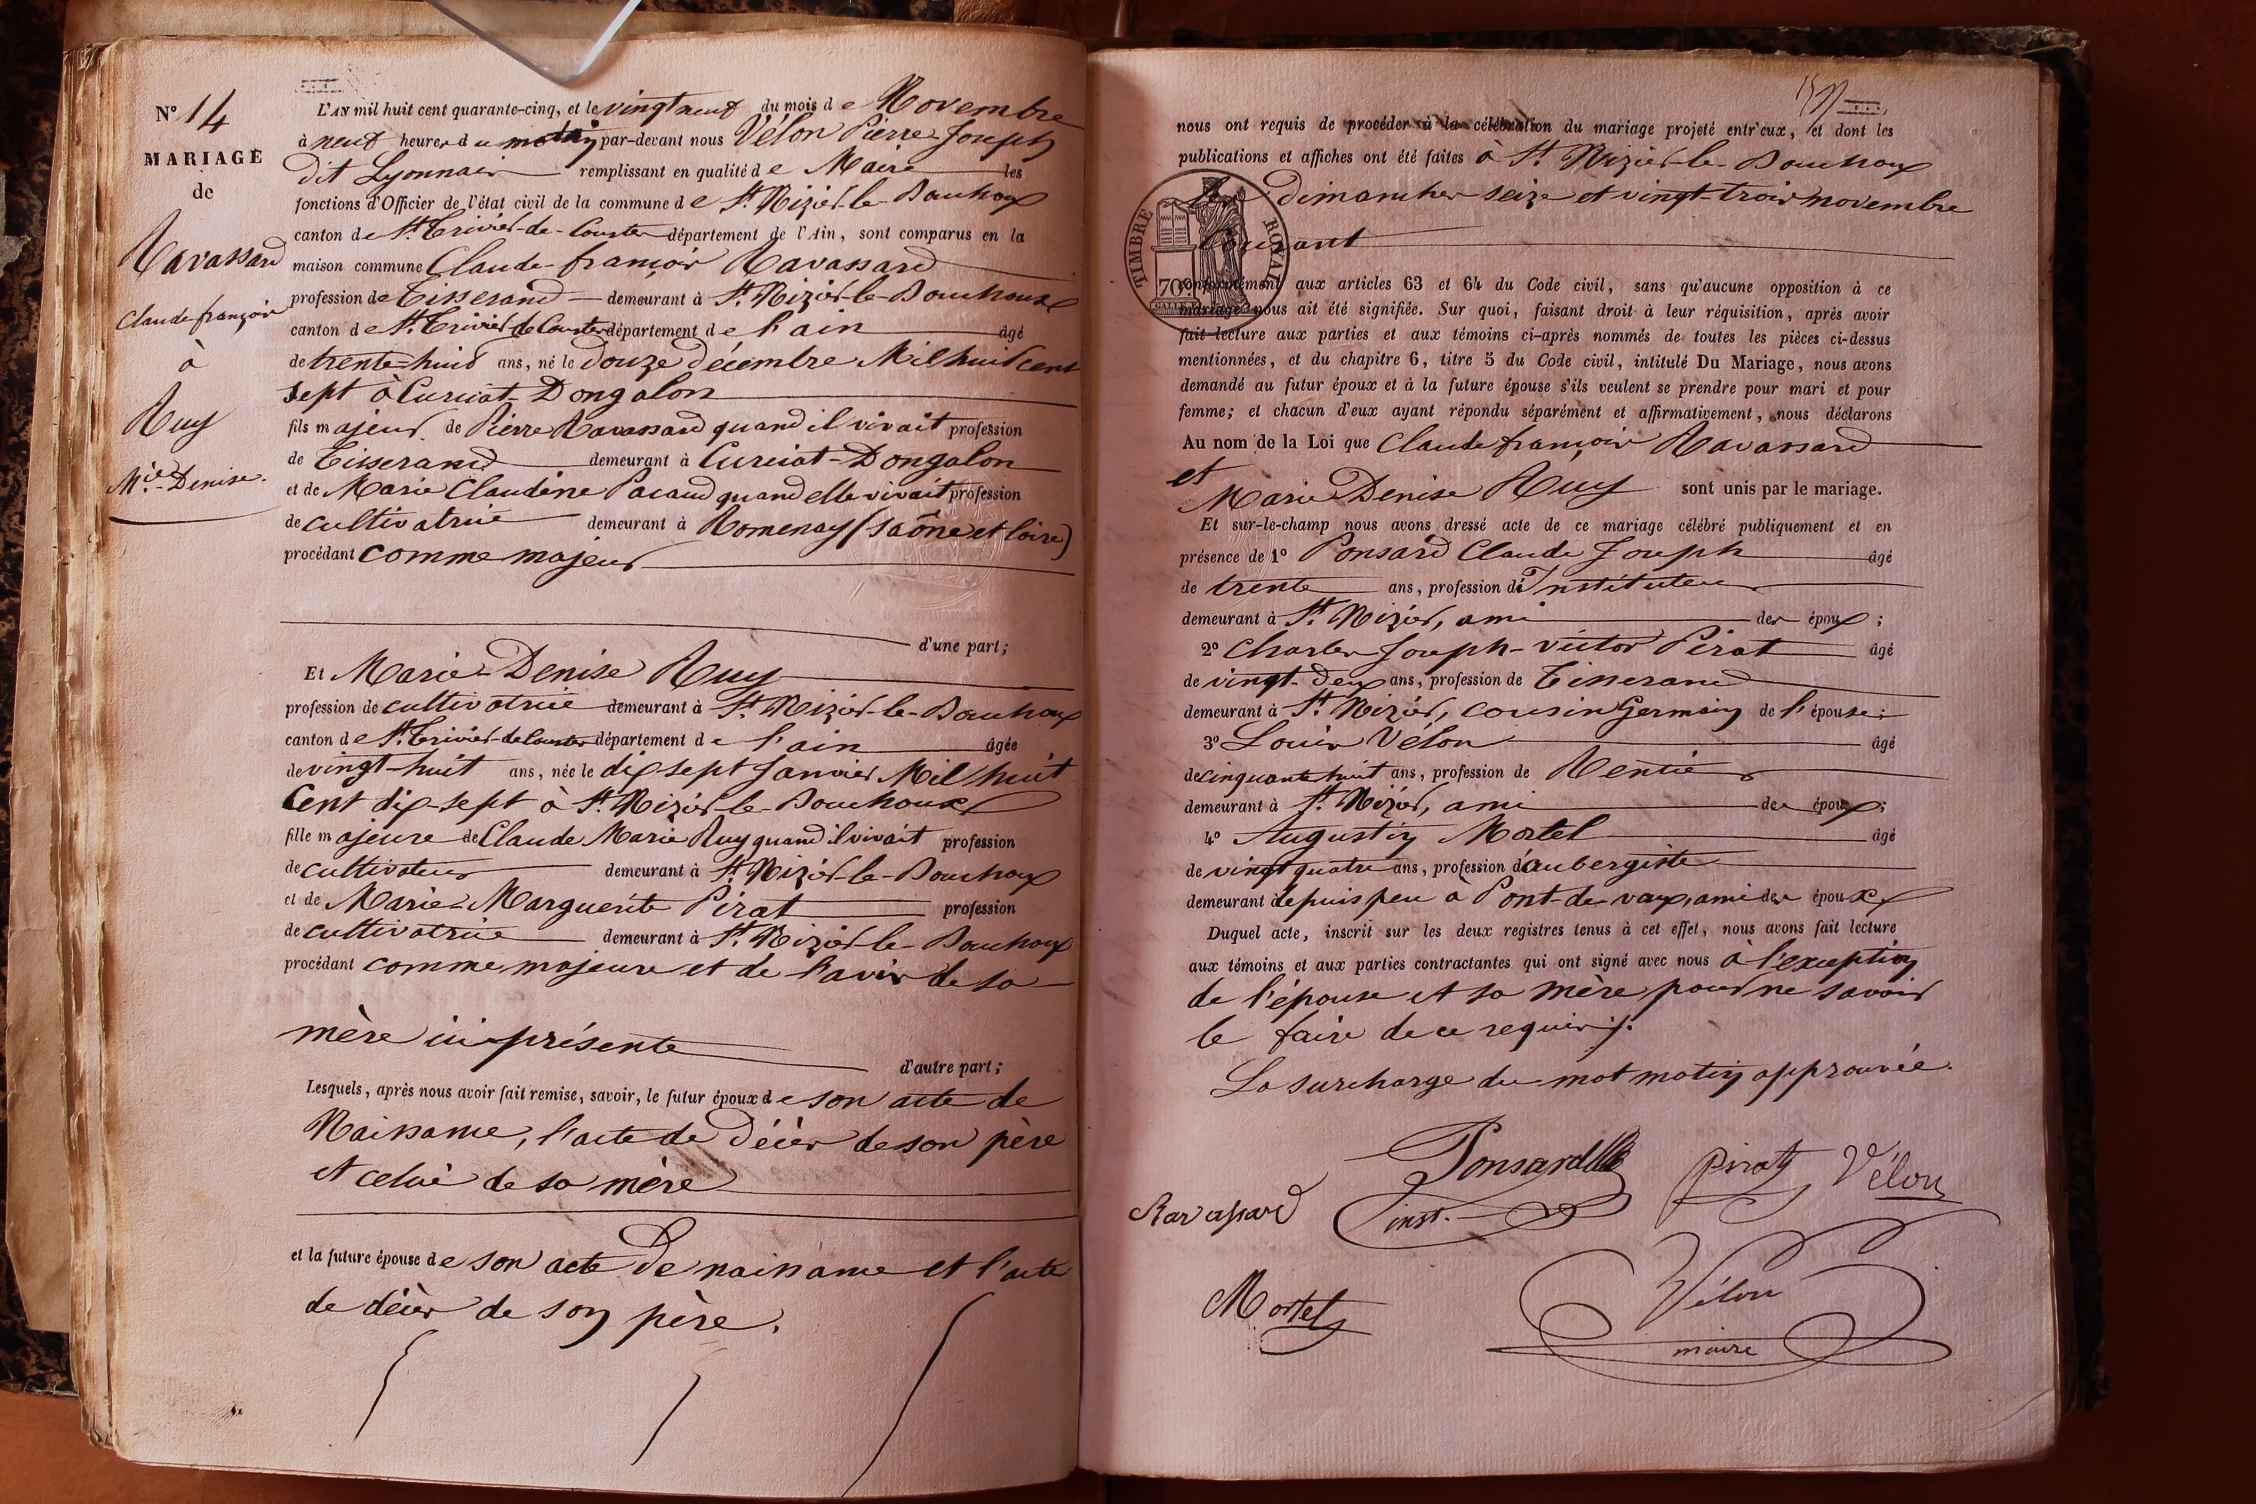 N° 14
MARIAGE
de
Ravassard
Claude françois
à
Ruy
Mie. Denise.
L'AN mil huit cent quarante-cinq, et le vingt neuf du mois de Novembre
à neuf heures du matin par-devant nous Vélon Pierre Joseph
dit Lyonnais remplissant en qualité de Maire les
fonctions d'Officier de l'état civil de la commune de St. Nizier-le-Bouchoux
canton de St. Trivier-de-Courtes département de l'Ain, sont comparus en la
maison commune Claude-françois Ravassard
profession de Tisserand demeurant à St. Nizier-le-Bouchoux
canton de St. Trivier de Courtes département de l'ain âgé
de trente-huit ans, né le douze décembre Mil huit cent
sept à Curciat-Dongalon
fils majeur de Pierre Ravassard quand il vivait profession
de Tisserand demeurant à Curciat-Dongalon
et de Marie Claudine Pacaud quand elle vivait profession
de cultivatrice demeurant à Romenay (Saône et loire)
procédant comme majeur
d'une part;
Et Marie-Denise Ruy
profession de cultivatrice demeurant à St. Nizier-le-Bouchoux
canton de St. Trivier-de Courtes département de l'ain âgée
de vingt-huit ans, née le dix sept Janvier Mil huit
Cent dix-sept à St. Nizier-le-Bouchoux
fille majeure de Claude Marie Ruy quand il vivait profession
de cultivateur demeurant à St. Nizier-le-Bouchoux
et de Marie-Marguerite Pirat profession
de cultivatrice demeurant à St. Nizier-le-Bouchoux
procédant comme majeure et de l'avis de sa
mère ici présente
d'autre part;
Lesquels, après nous avoir fait remise, savoir, le futur époux de son acte de
Naissance, l'acte de Décès de son père
et celui de sa mère
et la future épouse de son acte De naissance et l'acte
de décès de son père.
nous ont requis de procéder à la célébration du mariage projeté entr'eux, et dont les
publications et affiches ont été faites à St. Nizier-le-Bouchoux
les dimanches seize et vingt-trois novembre
Courant
TIMBRE ROYAL
70
conformément aux articles 63 et 64 du Code civil, sans qu'aucune opposition à ce
mariage nous ait été signifiée. Sur quoi, faisant droit à leur réquisition, après avoir
fait lecture aux parties et aux témoins ci-après nommés de toutes les pièces ci-dessus
mentionnées, et du chapitre 6, titre 5 du Code civil, intitulé Du Mariage, nous avons
demandé au futur époux et à la future épouse s'ils veulent se prendre pour mari et pour
femme; et chacun d'eux ayant répondu séparément et affirmativement, nous déclarons
Au nom de la Loi que Claude françois Ravassard
et
Marie Denise Ruy sont unis par le mariage.
Et sur-le-champ nous avons dressé acte de ce mariage célébré publiquement et en
présence de 1° Ponsard Claude Joseph âgé
de trente ans, profession d'Instituteur
demeurant à St. Nizier, ami des époux;
2° Charles Joseph-victor Pirat âgé
de vingt-deux ans, profession de Tisserand
demeurant à St. Nizier, cousin Germain de l'épouse;
3° Louis Vélon âgé
de cinquante huit ans, profession de Rentier
demeurant à St. Nizier, ami des époux;
4° Augustin Mortel âgé
de vingt quatre ans, profession d'aubergiste
demeurant depuis peu à Pont-de-vaux, ami des époux
Duquel acte, inscrit sur les deux registres tenus à cet effet, nous avons fait lecture
aux témoins et aux parties contractantes qui ont signé avec nous à l'exception
de l'épouse et sa mère pour ne savoir
le faire de ce requis./.
La surcharge du mot matin approuvée.
Ponsard
Pirat Vélon
Ravassard inst.
Mortel
Vélon
maire